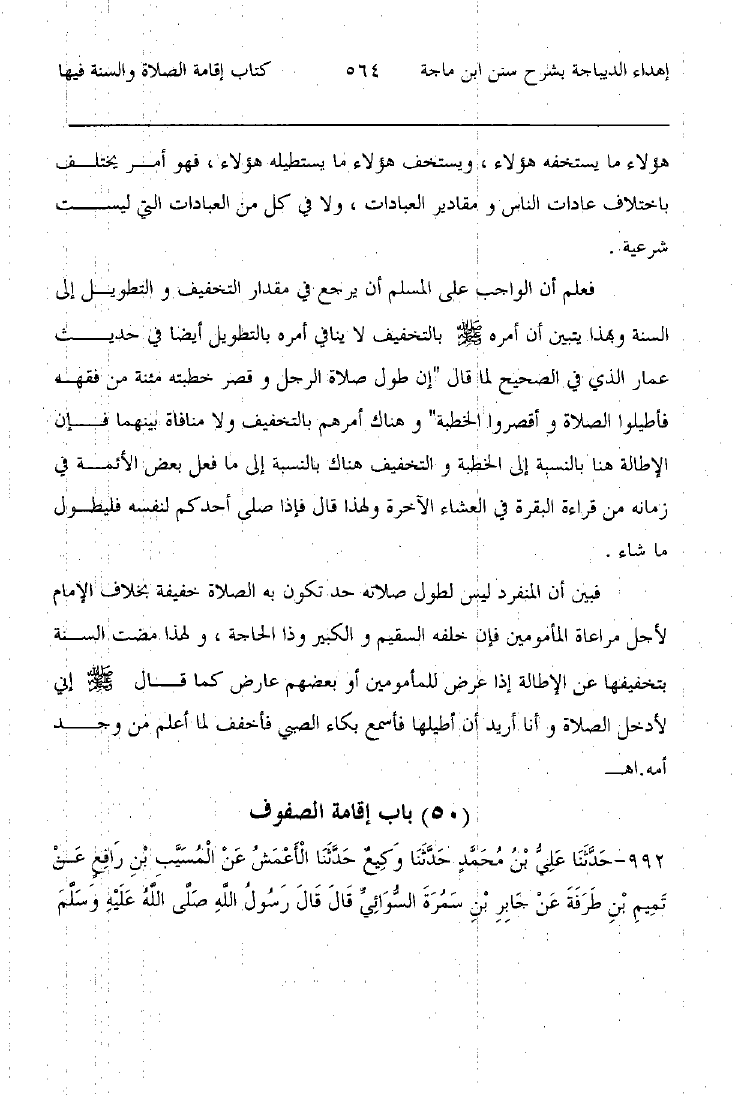 إهداء الديباجة بشرح سنن ابن ماجة ٥٦٤ كتاب إقامة الصلاة والسنة فيها
هؤلاء ما يستخفه هؤلاء ، ويستخف هؤلاء ما يستطيله هؤلاء ، فهو أمر يختلف
باختلاف عادات الناس و مقادير العبادات ، ولا في كل من العبادات التي ليست
شرعية .
فعلم أن الواجب على المسلم أن يرجع في مقدار التخفيف و التطويل إلى
السنة وبهذا يتبين أن أمره ﷺ بالتخفيف لا ينافي أمره بالتطويل أيضا في حديث
عمار الذي في الصحيح لما قال "إن طول صلاة الرجل و قصر خطبته مئنة من فقهه
فأطيلوا الصلاة و أقصروا الخطبة" و هناك أمرهم بالتخفيف ولا منافاة بينهما فإن
الإطالة هنا بالنسبة إلى الخطبة و التخفيف هناك بالنسبة إلى ما فعل بعض الأئمة في
زمانه من قراءة البقرة في العشاء الآخرة ولهذا قال فإذا صلى أحدكم لنفسه فليطول
ما شاء .
فبين أن المنفرد ليس لطول صلاته حد تكون به الصلاة خفيفة بخلاف الإمام
لأجل مراعاة المأمومين فإن خلفه السقيم و الكبير وذا الحاجة ، و لهذا مضت السنة
بتخفيفها عن الإطالة إذا عرض للمأمومين أو بعضهم عارض كما قال ﷺ إني
لأدخل الصلاة و أنا أريد أن أطيلها فأسمع بكاء الصبي فأخفف لما أعلم من وجد
أمه.اهـ
(٥٠) باب إقامة الصفوف
٩٩٢-حَدَّثَنَا عَلِيُّ بْنُ مُحَمَّدٍ حَدَّثَنَا وَكِيعٌ حَدَّثَنَا الْأَعْمَشُ عَنْ الْمُسَيَّبِ بْنِ رَافِعٍ عَنْ
تَمِيمِ بْنِ طَرَفَةَ عَنْ جَابِرِ بْنِ سَمُرَةَ السُّوَائِيِّ قَالَ قَالَ رَسُولُ اللَّهِ صَلَّى اللَّهُ عَلَيْهِ وَسَلَّمَ